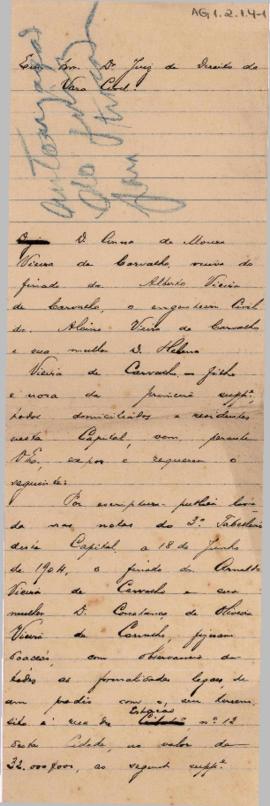 AG1.2.1.4-1
Exmo. Snr. Dr. Juiz de Direito da
Vara Civel
D. Anna de Moura
Vieira de Carvalho, viuva do
finado Dr. Alberto Vieira
de Carvalho, o engenheiro Civil
Dr. Vieira de Carvalho
e sua mulher D. Helena
Vieira de Carvalho, filho
e nora da primeira suppte.
todos domiciliados e residentes
nesta Capital, vem, perante
V. Ex., expor e requerer o
seguinte:
Por escriptura publica lavra-
da nas notas do 3º Tabellião
desta Capital, a 18 de Junho
de 1904, o finado Dr. Arnaldo
Vieira de Carvalho e sua
mulher D. Constança de Oliveira
Vieira de Carvalho, fizeram
doacção, com observancia de
todas as formalidades legaes, de
um predio com o seu terreno,
sito á rua da Estação nº 12
desta Cidade, no valor de
32.000$000, ao segundo suppte.